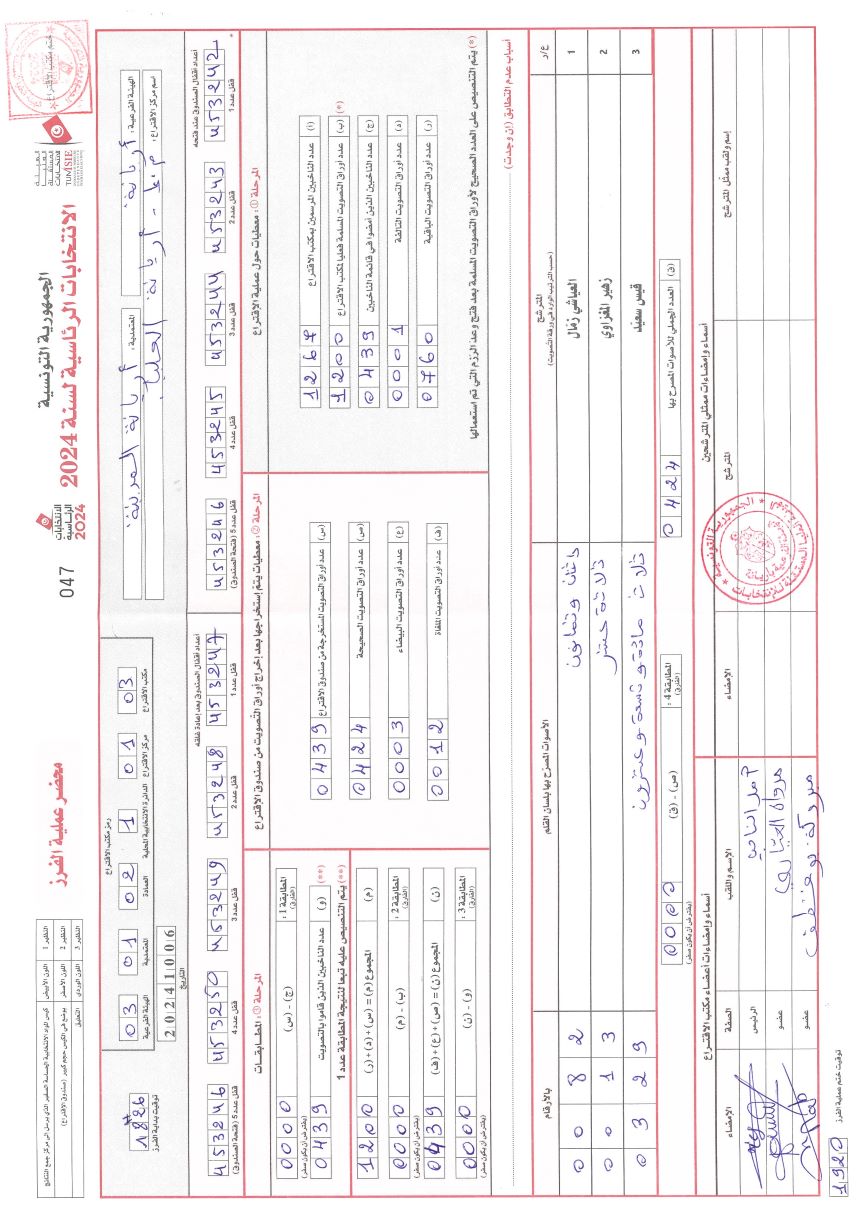 الجمهورية التونسية
الانتخابات الرئاسية لسنة 2024
محضر عملية الفرز
047
الانتخابات
الرئاسية
2024
TUNISIE
ختم مكتب الاقتراع
النظير 1 اللون الأبيض
النظير 2 اللون الأصفر يوضع في الكيس حجم كبير (صندوق الاقتراع)
النظير 3 اللون الوردي التعليق
الهيئة الفرعية: أريانة
المعتمدية: أريانة المدينة
اسم مركز الاقتراع:
رمز مكتب الاقتراع
03 01 02 1 01 03
الهيئة الفرعية المعتمدية العمادة الدائرة الانتخابية المحلية مركز الاقتراع مكتب الاقتراع
20241006
التاريخ
1826
توقيت بداية الفرز
أعداد أقفال الصندوق عند فتحه
453242 453243 453244 453245 453246
قفل عدد 1 قفل عدد 2 قفل عدد 3 قفل عدد 4 قفل عدد 5 (فتحة الصندوق)
أعداد أقفال الصندوق بعد إعادة غلقه
453247 453248 453249 453250 453246
قفل عدد 1 قفل عدد 2 قفل عدد 3 قفل عدد 4 قفل عدد 5 (فتحة الصندوق)
المرحلة ①: معطيات حول عملية الاقتراع
(أ) عدد الناخبين المرسمين بمكتب الاقتراع 1267
(ب) عدد أوراق التصويت المسلمة فعليا لمكتب الاقتراع (*) 1200
(ج) عدد الناخبين الذين أمضوا في قائمة الناخبين 0439
(د) عدد أوراق التصويت التالفة 0001
(ر) عدد أوراق التصويت الباقية 0760
(*) يتم التنصيص على العدد الصحيح لأوراق التصويت المسلمة بعد فتح وعد الرزم التي تم استعمالها
المرحلة ②: معطيات يتم إستخراجها بعد إخراج أوراق التصويت من صندوق الاقتراع
(س) عدد أوراق التصويت المستخرجة من صندوق الاقتراع 0439
(ص) عدد أوراق التصويت الصحيحة 0424
(ع) عدد أوراق التصويت البيضاء 0003
(ف) عدد أوراق التصويت الملغاة 0012
المرحلة ③: المطابقات
المطابقة 1: (الفارق) (ج) - (س) 0000 (يفترض أن يكون صفر)
(**) (و) عدد الناخبين الذين قاموا بالتصويت 0439
(**) يتم التنصيص عليه تبعا لنتيجة المطابقة عدد 1
(م) المجموع (م) = (س) + (د) + (ر) 1200
المطابقة 2: (الفارق) (ب) - (م) 0000 (يفترض أن يكون صفر)
(ن) المجموع (ن) = (ص) + (ع) + (ف) 0439
المطابقة 3: (الفارق) (و) - (ن) 0000 (يفترض أن يكون صفر)
أسباب عدم التطابق (إن وجدت)
ع/ر المترشح الأصوات المصرّح بها بلسان القلم بالأرقام
(حسب الترتيب الوارد في ورقة التصويت)
1 العياشي زمال اثنان وثمانون 0082
2 زهير المغزاوي ثلاثة عشر 0013
3 قيس سعيد ثلاث مائة وتسعة وعشرون 0329
(ق) العدد الجملي للأصوات المصرح بها 0424
المطابقة 4: (الفارق) (ص) - (ق) 0000 (يفترض أن يكون صفر)
أسماء وإمضاءات ممثلي المترشحين
إسم ولقب ممثل المترشح المترشح الإمضاء
أسماء وإمضاءات أعضاء مكتب الاقتراع
الإسم واللقب الصفة الإمضاء
الرئيس
عضو
عضو
1920
توقيت ختم عملية الفرز